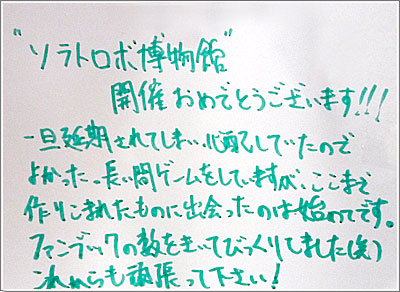 "ソラトロボ博物館"
開催おめでとうございます!!!
一旦延期されてしまい、心配していたので
よかった。長い間ゲームをしていますが、ここまで
作りこまれたものに出会ったのは始めてです。
ファンブックの数をきいてびっくりしました(笑)
これからも頑張って下さい!